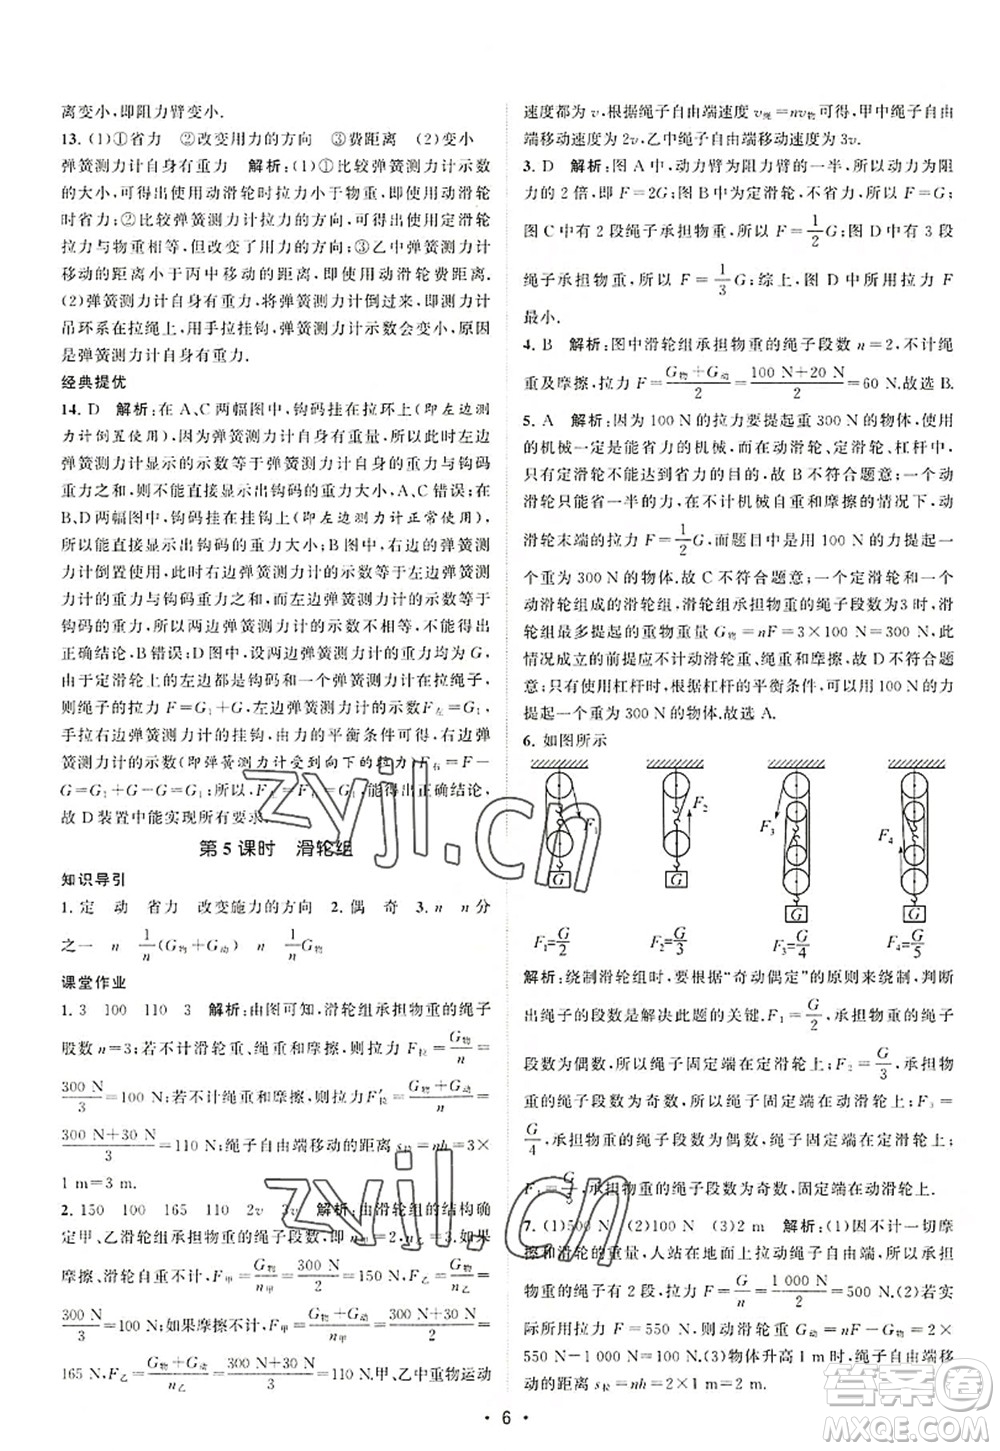 离变小,即阻力臂变小.
13. (1)①省力 ②改变用力的方向 ③费距离 (2)变小
弹簧测力计自身有重力 解析:(1)①比较弹簧测力计示数
的大小,可得出使用动滑轮时拉力小于物重,即使用动滑轮
时省力;②比较弹簧测力计拉力的方向,可得出使用定滑轮
拉力与物重相等,但改变了用力的方向;③乙中弹簧测力计
移动的距离小于丙中移动的距离,即使用动滑轮费距离.
(2)弹簧测力计自身有重力,将弹簧测力计倒过来,测力计
吊环系在拉绳上,用手拉挂钩,弹簧测力计示数会变小,原因
是弹簧测力计自身有重力.
经典提优
14. D 解析:在A、C两幅图中,钩码挂在拉环上(即左边测
力计倒置使用),由于弹簧测力计自身有重量,所以左边弹
簧测力计显示的示数等于左边弹簧测力计的重力与钩码
重力之和,则不能直接显示出钩码的重力,A、C错误;在
B、D两幅图中,钩码挂在挂钩上(即左边测力计正常使用),
所以能直接显示出钩码的重力大小;B图中右边弹簧测
力计倒置使用,此时右边弹簧测力计的示数等于右边弹
簧测力计的重力与钩码重力之和,右边弹簧测力计的示数与
钩码的重力不相等,所以两弹簧测力计的示数不相等,不能得出
正确结论,B错误;D图中,设两边弹簧测力计的重力为G,
由于定滑轮的左边是钩码和左边的弹簧测力计在拉绳子,
则绳子的拉力F=G₁+G,左边弹簧测力计的示数F左=G₁,
手拉右边弹簧测力计的挂钩,由力的平衡条件可知,右边弹
簧测力计的示数(即弹簧测力计受到的拉力)F右=F-
G=G₁+G-G=G₁,所以,F左=F右,能得出正确结论.
故D装置中能实现所有要求.
第5课时 滑轮组
知识导引
1. 定 动 省力 改变施力的方向 2. 偶 奇 3. n n分
之一 n 1/n(G物+G动) n 1/n G物
课堂作业
1. 3 100 110 3 解析:由图可知,滑轮组承担物重的绳子
股数n=3;若不计滑轮重、绳重和摩擦,则拉力F拉=G物/n=
300 N/3=100 N;若不计绳重和摩擦,则拉力F′拉=(G物+G动)/n=
(300 N+30 N)/3=110 N;绳子自由端移动的距离s绳=nh=3×
1 m=3 m.
2. 150 100 165 110 2v 3v 解析:由滑轮组的结构确
定甲、乙滑轮组承担物重的绳子段数是n甲=2,n乙=3.如果
摩擦、滑轮重不计,F甲=G物/n甲=300 N/2=150 N,F乙=G物/n乙=
300 N/3=100 N;如果摩擦不计,F甲=(G物+G动)/n甲=(300 N+30 N)/2=
165 N,F乙=(G物+G动)/n乙=(300 N+30 N)/3=110 N.甲、乙中重物运动
速度都为v,根据绳子自由端速度v绳=nv物可得,甲中绳子自
由端移动速度为2v,乙中绳子自由端移动速度为3v.
3. D 解析:图A中,动力臂为阻力臂的一半,所以动力为阻
力的2倍,即F=2G;图B中为定滑轮,不省力,所以F=G;
图C中有2段绳子承担物重,所以F=1/2 G;图D中有3段
绳子承担物重,所以F=1/3 G;综上,图D中所用拉力F
最小.
4. B 解析:图中滑轮组承担物重的绳子段数n=2,不计绳
重及摩擦,拉力F=(G物+G动)/2=(100 N+20 N)/2=60 N.故选B.
5. A 解析:因为100 N的拉力要提起重300 N的物体,使用
的机械一定是能省力的机械,而在动滑轮、定滑轮、杠杆中,
只有定滑轮不能达到省力的目的,故B不符合题意;一个动
滑轮只能省一半的力,在不计机械自重和摩擦的情况下,动
滑轮末端的拉力F=1/2 G,而题目中要用100 N的力提起
一个重为300 N的物体.故C不符合题意;一个定滑轮和一
动滑轮组成的滑轮组,滑轮组承担物重的绳子段数为3时,滑
轮组最多提起的重物重量G物=nF=3×100 N=300 N,此
情况成立的前提应为不计动滑轮重、绳重和摩擦,故D不符合
题意;只有使用杠杆时,根据杠杆的平衡条件,可用100 N的力
提起一个重为300 N的物体.故选A.
6. 如图所示
F₁ G F₂ G F₃ G F₄ G
F₁=G/2 F₂=G/3 F₃=G/4 F₄=G/5
解析:绕制滑轮组时,要根据“奇动偶定”的原则来绕制,判断
出绳子的段数是解决此题的关键.F₁=G/2,承担物重的绳子
段数为偶数,所以绳子固定端在定滑轮上;F₂=G/3,承担物
重的绳子段数为奇数,所以绳子固定端在动滑轮上;F₃=
G/4,承担物重的绳子段数为偶数,所以固定端在定滑轮上;
F₄=G/5,承担物重的绳子段数为奇数,固定端在动滑轮上.
7. (1)500 N (2)150 N (3)2 m 解析:(1)因不计一切摩
擦和滑轮的重量,人站在地面上拉动绳子自由端,承担物重
的绳子为2段,拉力F=G/n=1 000 N/2=500 N.(2)若在实
际所用的拉力F=550 N,则动滑轮重G动=nF-G物=2×
550 N-1 000 N=100 N.(3)物体升高1 m时,绳子自由端移
动的距离s绳=nh=2×1 m=2 m.
zyjl.cn
zyjl.cn
答案圈
MXQE.COM
· 6 ·